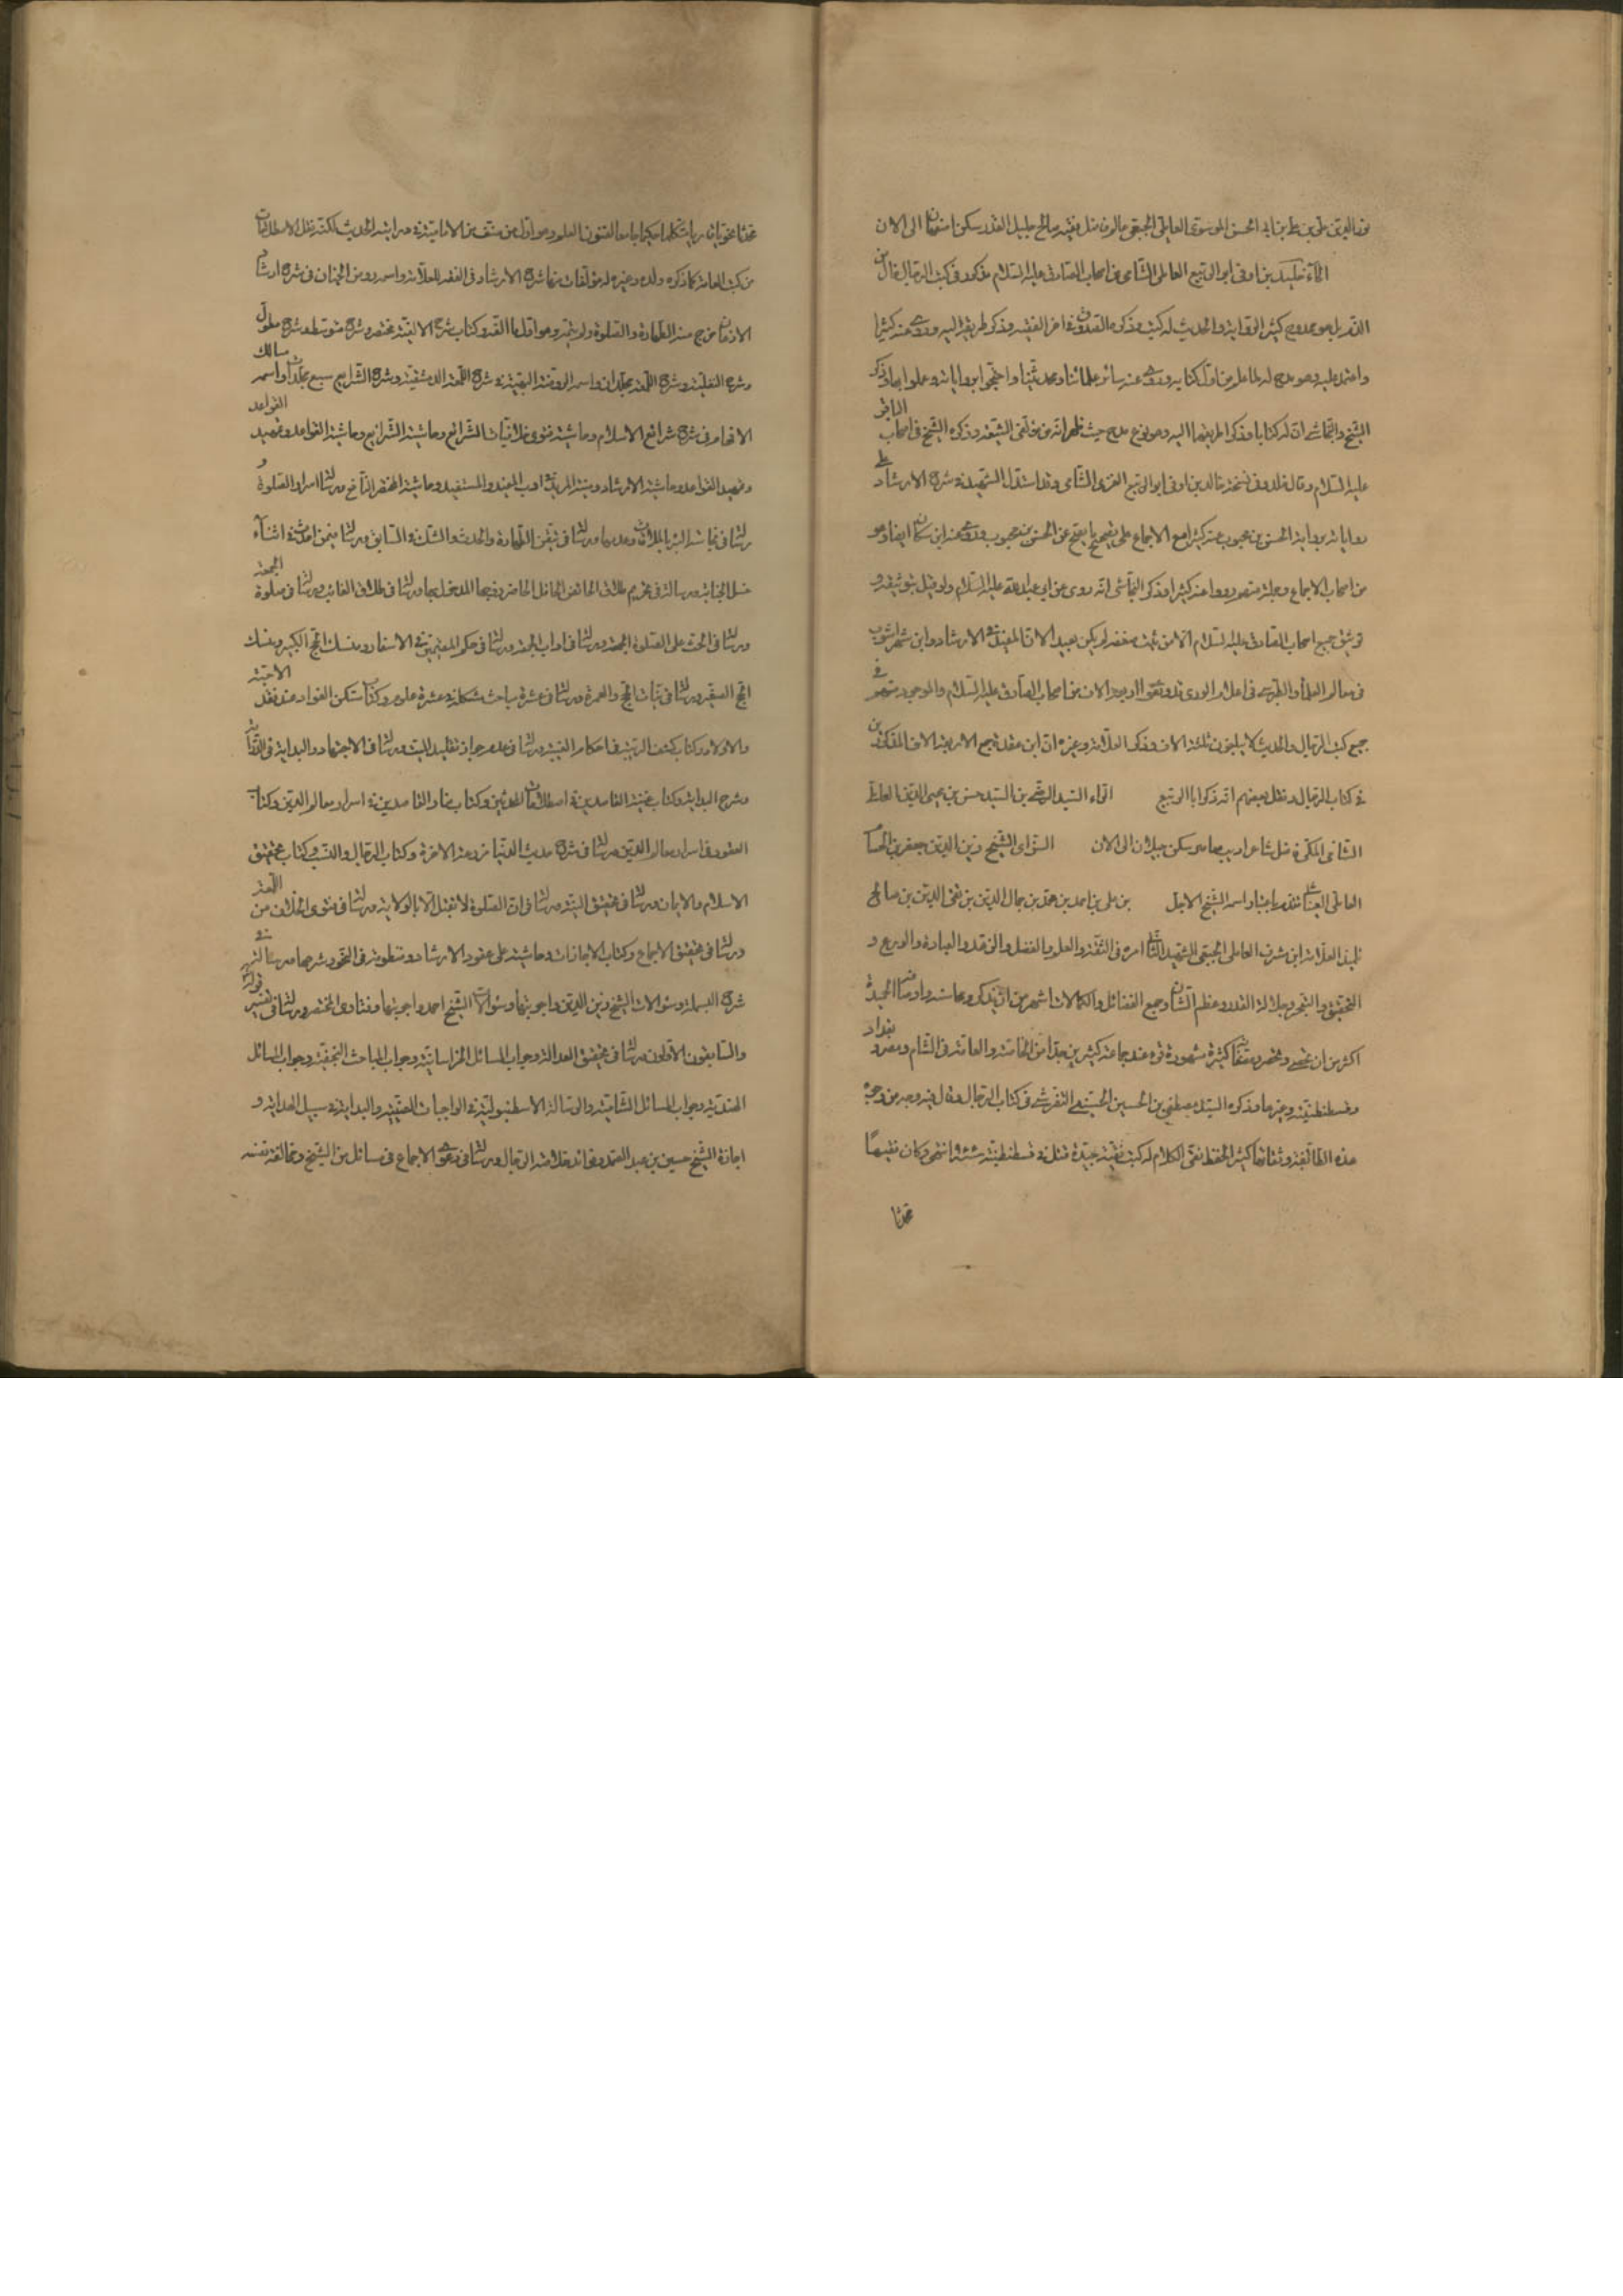 نور الدين علي بن علي بن ابي الحسن الموسوى العاملي الجبعي عالم فاضل فقيه صالح جليل القدر سكن اصفهان الى الان
الخاء خليد بن اوفى ابو الربيع العاملى الشامى من اصحاب الصادق عليه السلام مذكور فى كتب الرجال خال من
الذم بل هو ممدوح كثير الرواية والحديث له كتب وذكره الصدوق فى اخر الفقيه وذكر طريقه اليه وروى عنه كثيرا
واعتمد عليه وهو مدح له لما علم من اول كتابه وروى عنه سائر علمائنا ومحدثينا واحتجوا بروايات وعملوا بها وذكر
الشيخ والنجاشى ان له كتابا وذكرا طريقهما اليه وهو نوع مدح حيث ظهر انه من مؤلفى الشيعة وذكره الشيخ فى اصحاب الباقر
عليه السلام وقال خالد وفى نسخة خالد بن اوفى ابو الربيع العنزى الشامى وقد استدل الشهيد فى شرح الارشاد على
رواياته برواية الحسن بن محبوب عنه كثيرا مع الاجماع على تصحيح ما يصح عن الحسن بن محبوب وروى عنه ابن مسكان ايضا وهو
من اصحاب الاجماع وجملة منهم رووا عنه كثيرا وذكر النجاشى انه روى عن ابى عبد الله عليه السلام ولو قيل بتوثيقه و
توثيق جميع اصحاب الصادق عليه السلام الا من ثبت ضعفه لم يكن بعيدا لان المفيد فى الارشاد وابن شهراشوب
فى معالم العلماء والطبرسى فى اعلام الورى قد وثقوا اربعة الاف من اصحاب الصادق عليه السلام والموجود منهم فى
جميع كتب الرجال والحديث لا يبلغون ثلاثة الاف وذكر العلامة وغيره ان ابن عقدة جمع الاربعة الاف المذكورين
فى كتاب الرجال ونقل بعضهم انه ذكر ابا الربيع الراء السيد الرضى بن السيد حسن بن محيى الدين العاملى
الشامى المكى فاضل شاعر اديب معاصر سكن جيلان الى الان الزاى الشيخ زين الدين جعفر بن الحسام
العاملى العيناثى تقدم باعتبار اسمه الشيخ الاجل بن على بن احمد بن محمد بن جمال الدين بن تقى الدين بن صالح
تلميذ العلامة ابن شرف العاملى الجبعى الشهيد الثانى امره فى الثقة والعلم والفضل والزهد والعبادة والورع و
التحقيق والتبحر وجلالة القدر وعظم الشان وجمع الفضائل والكمالات اشهر من ان يذكر ومحاسنه واوصافه الحميدة
اكثر من ان تحصى وتحصر ومصنفاته كثيرة مشهورة قرء عند جماعة كثيرين جدا من الخاصة والعامة فى الشام ومصر و بغداد
وقسطنطنية وغيرها وذكره السيد مصطفى بن الحسين الحسينى التفرشى فى كتاب الرجال وقال فيه وجه من وجوه
هذه الطائفة وثقاتها كثير الحفظ نقى الكلام له كتب نفيسة جيدة قتل فى قسطنطنية سنة انتهى وكان فقيها
محدثا
محدثا نحويا قاريا متكلما حكيما جامعا لفنون العلم وهو اول من صنف من الامامية فى دراية الحديث لكنه نقل الاصطلاحات
من كتب العامة كما ذكره ولده وغيره له مؤلفات منها شرح الارشاد فى الفقه للعلامة واسمه روض الجنان فى شرح ارشاد
الاذهان خرج منه الطهارة والصلوة ولم يتمه وهو اول ما الفه وكتاب شرح الالفية مختصر وشرح متوسط وشرح مطول
وشرح النفلية وشرح اللمعة مجلدان واسمه الروضة البهية فى شرح اللمعة الدمشقية وشرح الشرايع سبع مجلدات واسمه مسالك
الافهام فى شرح شرائع الاسلام وحاشية فتوى خلافيات الشرائع وحاشية الشرايع وحاشية القواعد وتمهيد القواعد
وتمهيد القواعد وحاشية الارشاد ومنية المريد فى ادب المفيد والمستفيد وحاشية المختصر النافع ورسالة اسرار الصلوة و
رسالة فى نجاسة البئر بالملاقاة وعدمها ورسالة فى تيقن الطهارة والحدث والشك فى السابق ورسالة فيمن احدث فى اثناء
غسل الجنابة ورسالة فى تحريم طلاق الحائض الحائل الحاضر زوجها المدخول بها ورسالة فى طلاق الغائب ورسالة فى صلوة الجمعة
ورسالة فى الحث على الصلوة الجمعة ورسالة فى اداب الجمعة ورسالة فى حكم المقيمين فى الاسفار ومنسك الحج الكبير ومنسك
الحج الصغير ورسالة فى نيات الحج والعمرة ورسالة فى عشرة مباحث مشكلة فى عشرة علوم وكتاب مسكن الفؤاد عند فقد الاحبة
والاولاد وكتاب كشف الريبة فى احكام الغيبة ورسالة فى عدم جواز تقليد الميت ورسالة فى الاجتهاد والبداية فى الدراية
وشرح البداية وكتاب غنية القاصدين فى اصطلاحات المحدثين وكتاب منار القاصدين فى اسرار معالم الدين وكتاب
العقود فى اسرار معالم الدين ورسالة فى شرح حديث الدنيا مزرعة الاخرة وكتاب الرجال والنسب وكتاب تحقيق
الاسلام والايمان ورسالة فى تحقيق النية ورسالة فى ان الصلوة لا تقبل الا بالولاية ورسالة فى فتوى الخلاف من اللمعة
ورسالة فى تحقيق الاجماع وكتاب الاجازات وحاشية على عقود الارشاد ومنظومة فى النحو وشرحها ورسالة فى
شرح البسملة وسؤالات الشيخ زين الدين واجوبتها وسؤالات الشيخ احمد واجوبتها وفتاوى المختصر ورسالة فى تفسير قوله
والسابقون الاولون ورسالة فى تحقيق العدالة وجواب المسائل الخراسانية وجواب المباحث النجفية وجواب المسائل
الهندية وجواب المسائل الشامية والرسالة الاسطنبولية فى الواجبات العينية والبداية فى سبيل الهداية و
اجازة الشيخ حسين بن عبد الصمد وفوائد خلاصة الرجال ورسالة فى دعوى الاجماع فى مسائل من الشيخ ومخالفة نفسه